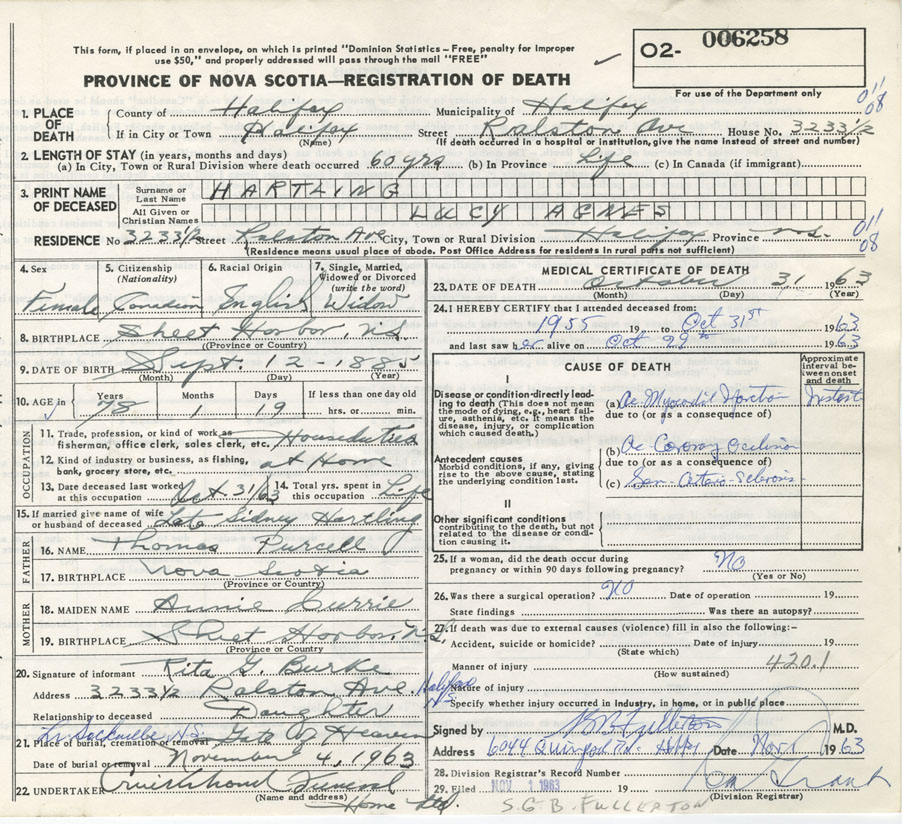 This form, if placed in an envelope, on which is printed "Dominion Statistics – Free, penalty for improper
use $50," and properly addressed will pass through the mail "FREE"
PROVINCE OF NOVA SCOTIA—REGISTRATION OF DEATH
02- 006258
For use of the Department only
011
08
1. PLACE OF DEATH County of Halifax Municipality of Halifax
If in City or Town Halifax (Name) Street Ralston Ave House No. 3233 1/2
(If death occurred in a hospital or institution, give the name instead of street and number)
2. LENGTH OF STAY (in years, months and days)
(a) In City, Town or Rural Division where death occurred 60 yrs (b) In Province Life (c) In Canada (if immigrant)
3. PRINT NAME OF DECEASED Surname or Last Name HARTLING
All Given or Christian Names LUCY AGNES
RESIDENCE No 3233 1/2 Street Ralston Ave City, Town or Rural Division Halifax Province N.S.
011
08
(Residence means usual place of abode. Post Office Address for residents in rural parts not sufficient)
4. Sex Female
5. Citizenship (Nationality) Canadian
6. Racial Origin English
7. Single, Married, Widowed or Divorced (write the word) Widow
8. BIRTHPLACE Sheet Harbor, N.S.
(Province or Country)
9. DATE OF BIRTH Sept. 12 - 1885
(Month) (Day) (Year)
10. AGE in Years 78 Months 1 Days 19 If less than one day old hrs. or min.
OCCUPATION
11. Trade, profession, or kind of work as fisherman, office clerk, sales clerk, etc. Houseduties
12. Kind of industry or business, as fishing, bank, grocery store, etc. at Home
13. Date deceased last worked at this occupation Oct. 31/63
14. Total yrs. spent in this occupation Life
15. If married give name of wife or husband of deceased Late Sidney Hartling
FATHER
16. NAME Thomas Purcell
17. BIRTHPLACE Nova Scotia
(Province or Country)
MOTHER
18. MAIDEN NAME Annie Currie
19. BIRTHPLACE Sheet Harbor, N.S.
(Province or Country)
20. Signature of informant Rita G. Burke
Address 3233 1/2 Ralston Ave, Halifax N.S.
Relationship to deceased Daughter
Lr. Sackville N.S.
21. Place of burial, cremation or removal Gate Of Heaven
Date of burial or removal November 4, 1963
22. UNDERTAKER Cruikshank Funeral
(Name and address) Home Ltd.
MEDICAL CERTIFICATE OF DEATH
23. DATE OF DEATH October 31 1963
(Month) (Day) (Year)
24. I HEREBY CERTIFY that I attended deceased from:
1955 19 to Oct 31st 1963
and last saw her alive on Oct 29th 1963
CAUSE OF DEATH
Approximate interval between onset and death
I
Disease or condition directly leading to death (This does not mean the mode of dying, e.g., heart failure, asthenia, etc. It means the disease, injury, or complication which caused death.)
(a) Ac Myocardial Infarction Instant
due to (or as a consequence of)
Antecedent causes
Morbid conditions, if any, giving rise to the above cause, stating the underlying condition last.
(b) Ac Coronary Occlusion
due to (or as a consequence of)
(c) Gen- Arterio-Sclerosis
II
Other significant conditions
contributing to the death, but not related to the disease or condition causing it.
25. If a woman, did the death occur during
pregnancy or within 90 days following pregnancy? No
(Yes or No)
26. Was there a surgical operation? NO Date of operation 19
State findings Was there an autopsy?
27. If death was due to external causes (violence) fill in also the following:–
Accident, suicide or homicide? Date of injury 19
(State which)
Manner of injury 420.1
(How sustained)
Nature of injury
Specify whether injury occurred in industry, in home, or in public place
Signed by M.D.
Address 6044 Date Nov 1 1963
28. Division Registrar's Record Number
29. Filed NOV 1 1963 19
(Division Registrar)
S.G.B. FULLERTON